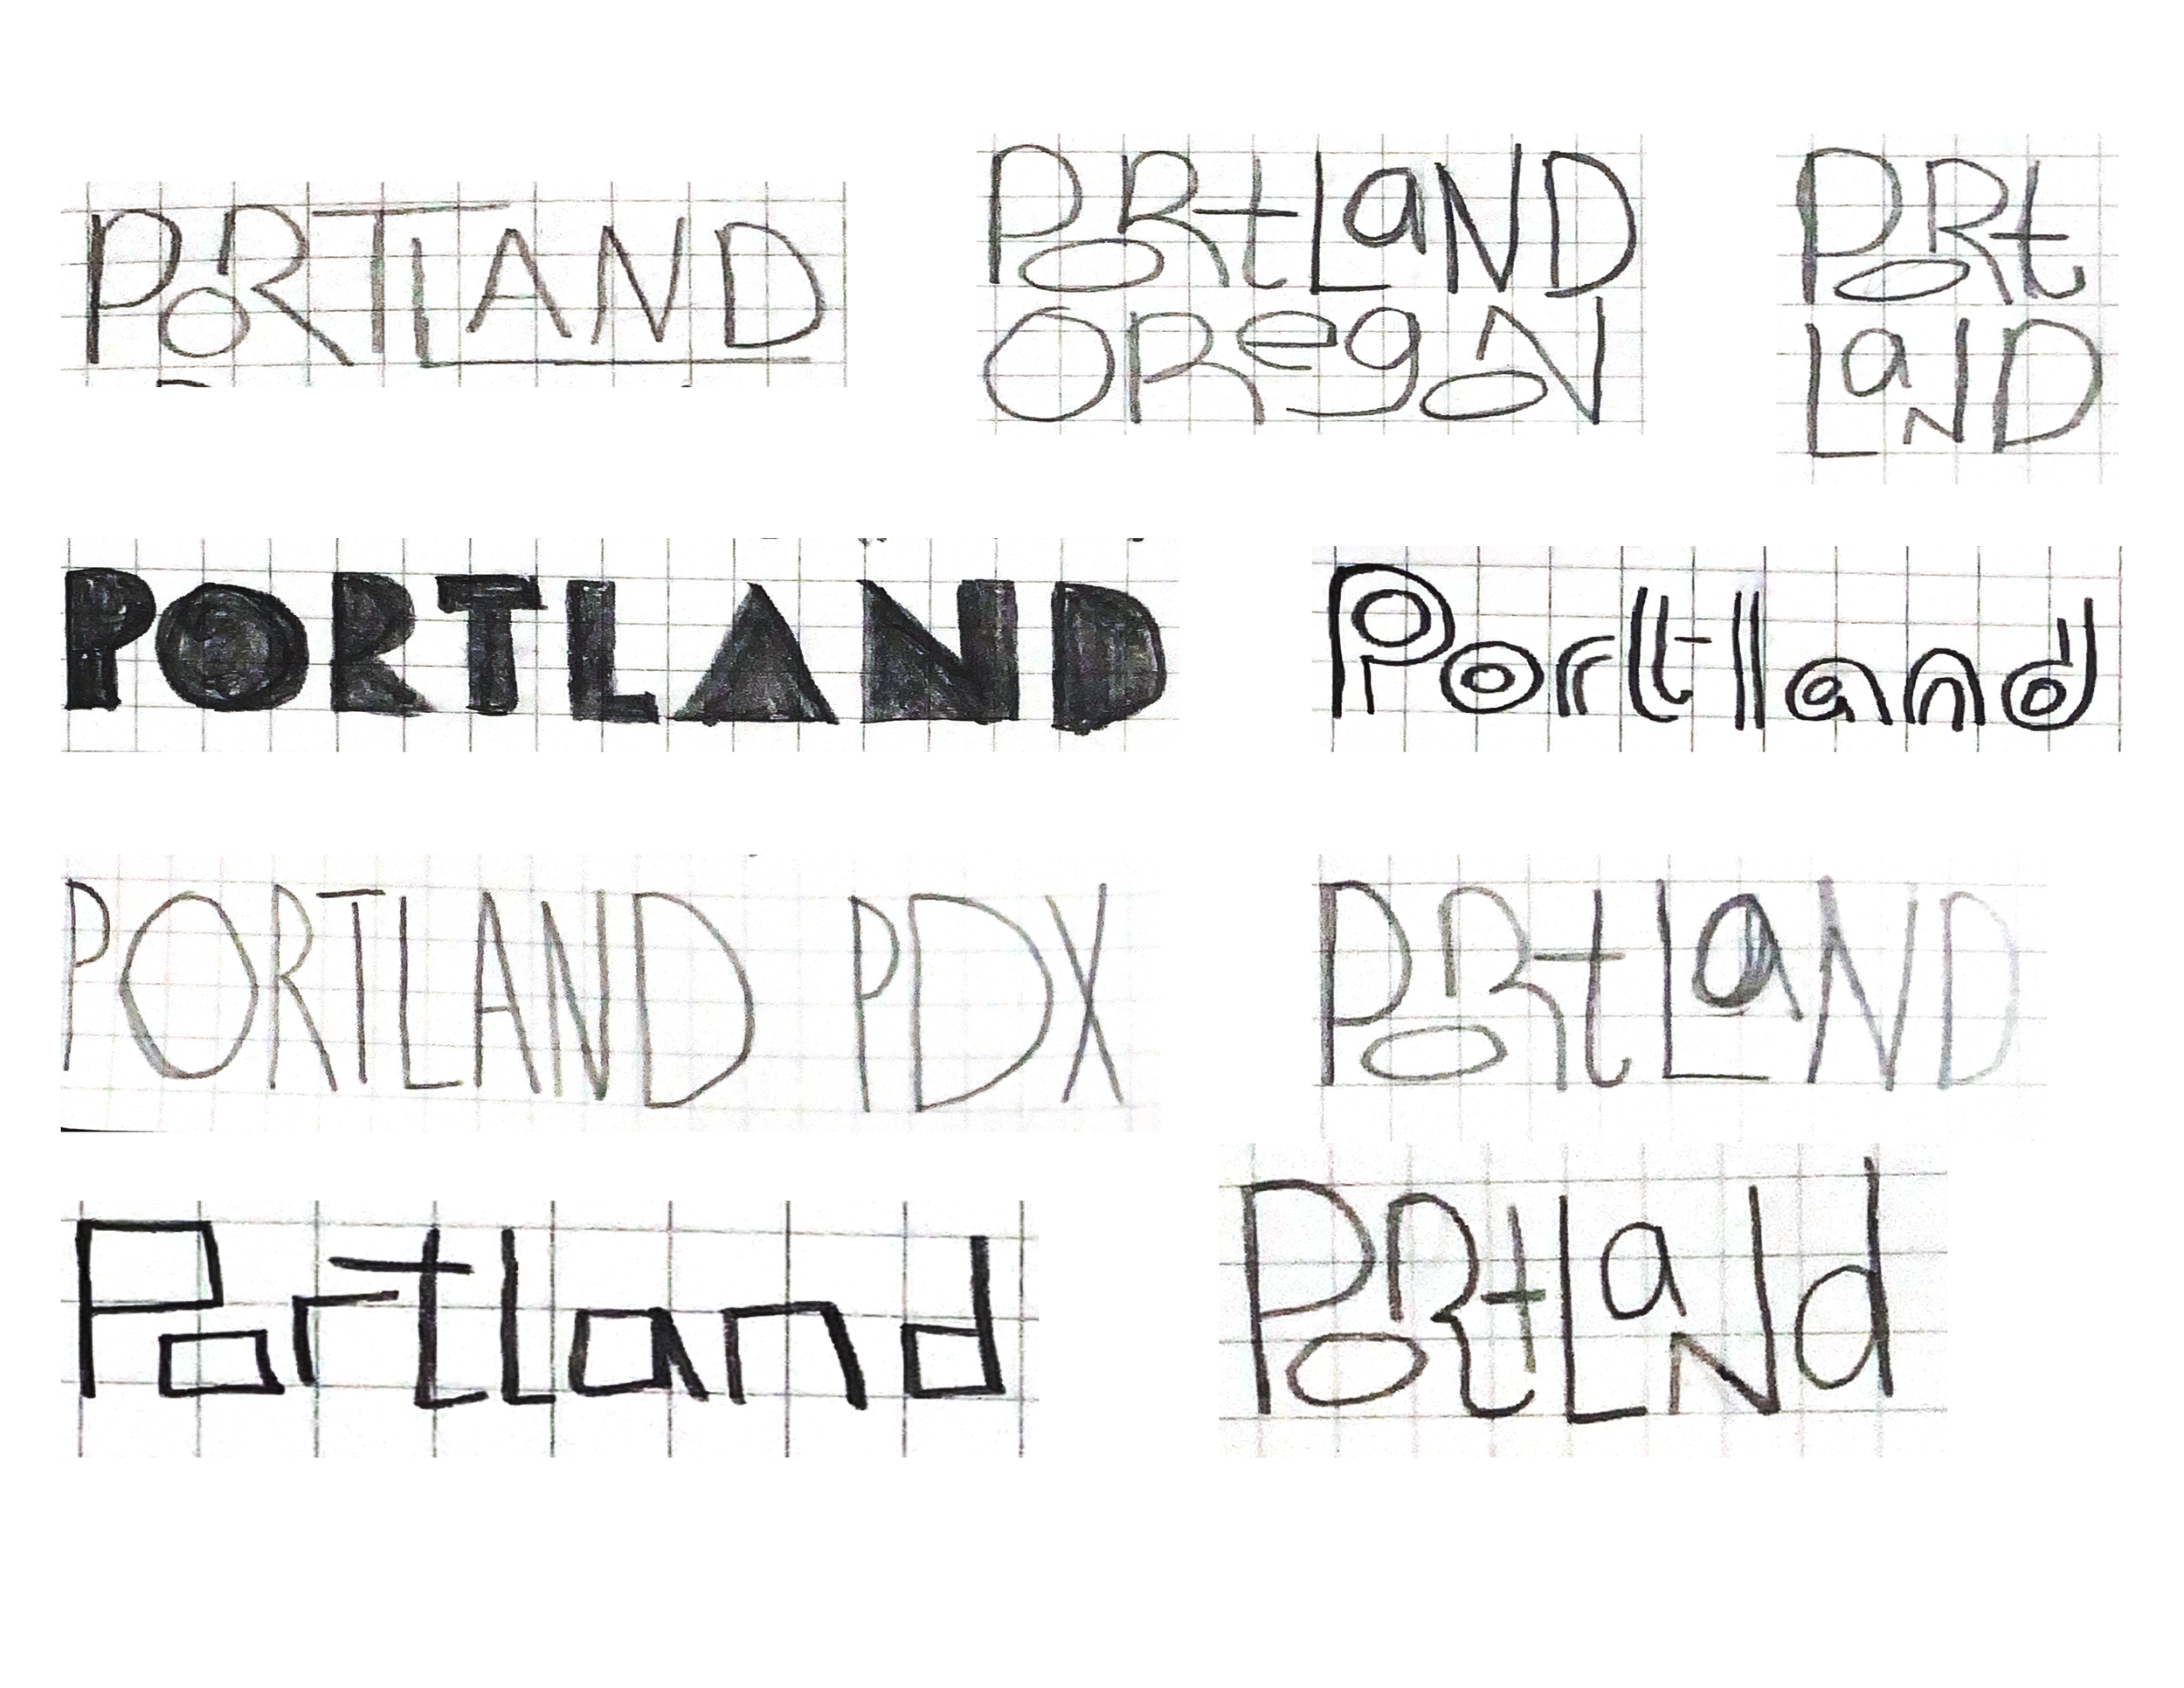 PORTLAND
PORtLaND
ORegoN
PORt
LaND
PORTLAND
Portland
PORTLAND PDX
PORtLaND
Portland
PORtLaNd